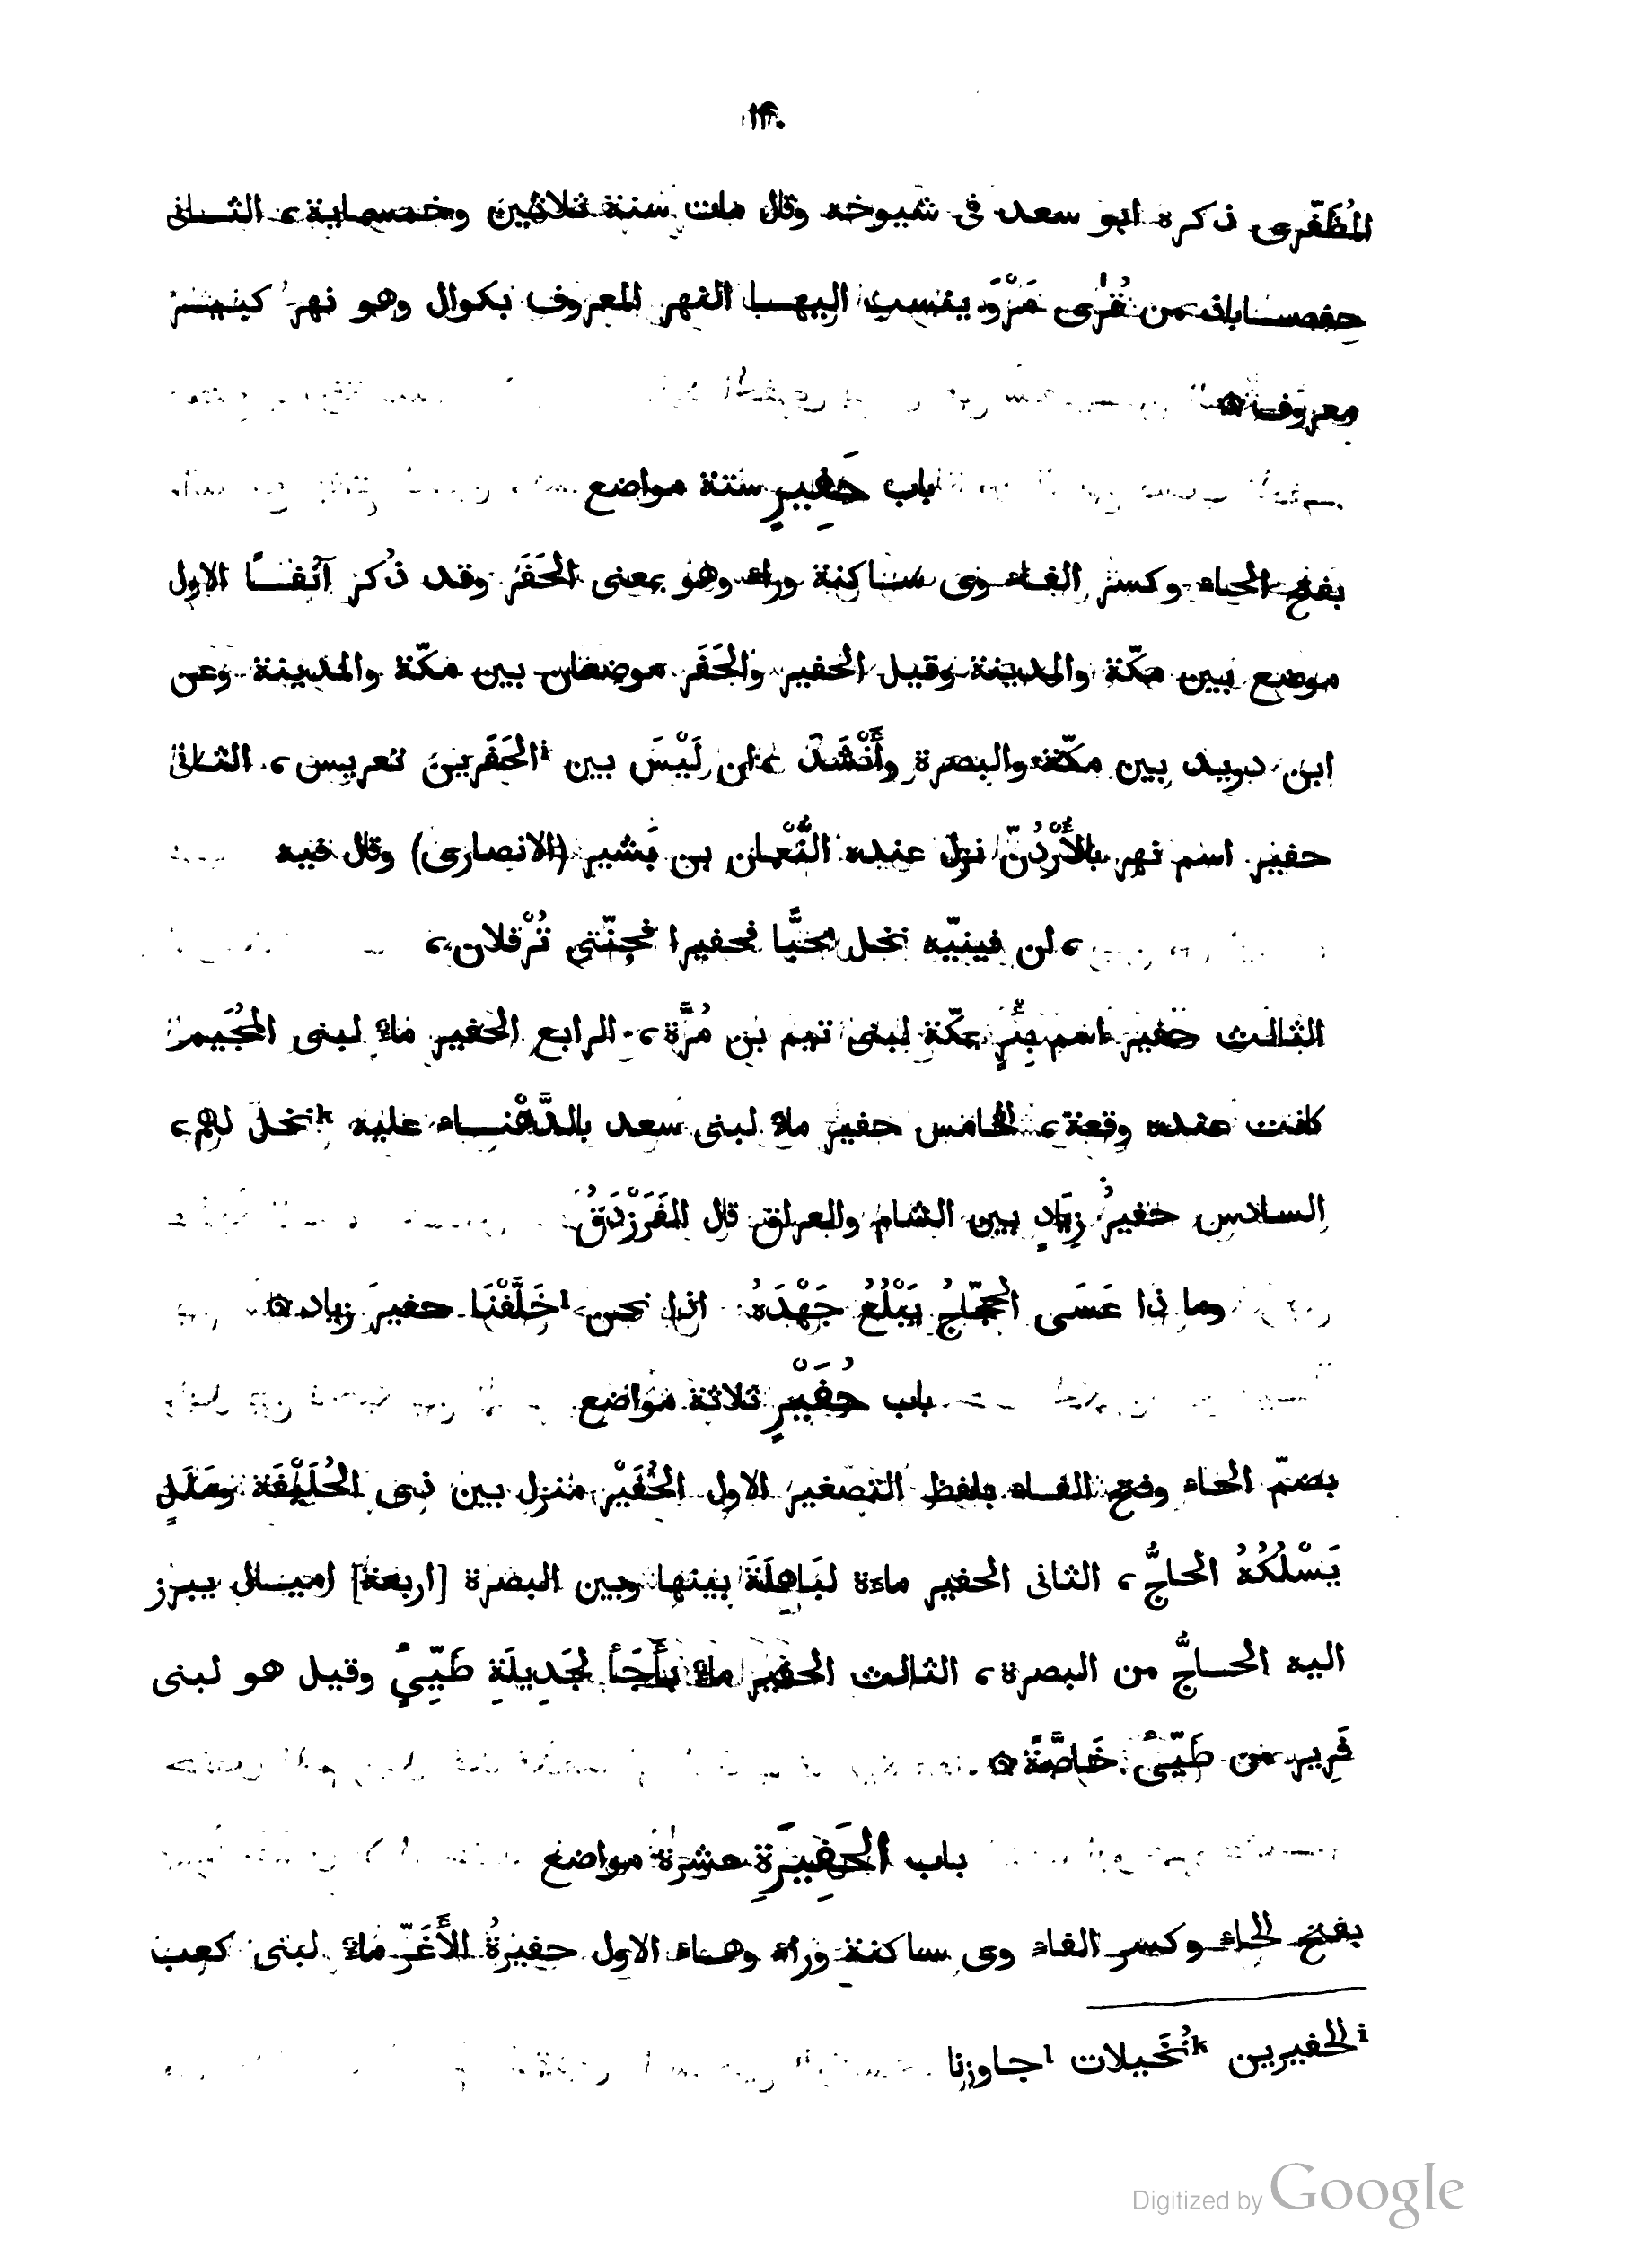 ١٤٠
المُظَفّرى ذكره ابو سعد فى شيوخه وقال مات سنة ثلاثين وخمسماية، الثانى
حِفصاباذ من قُرَى مَرْوَ ينسب اليها النهر المعروف بكوال وهو نهر كبير
معروف ۞
باب حَفِيرٍ ستة مواضع
بفتح الحاء وكسر الفاء وى ساكنة وراء وهو بمعنى الحَفَر وقد ذُكر آنفًا الاول
موضع بين مكّة والمدينة وقيل الحفير والحَفَر موضعان بين مكّة والمدينة وعن
ابن دريد بين مكّة والبصرة وأَنْشَدَ، ان لَيْسَ بين iالحَفَرين تعريس، الثانى
حفير اسم نهر بالأُرْدُنّ نزل عنده النُّعْمان بن بَشير (الانصارى) وقال فيه
، ان فينيّه نخل محبًّا فحفيرا فجنّتى تُرْفلان،
الثالث حفير اسم بِئْرٍ بمكّة لبنى تيم بن مُرَّة، الرابع الحفير ماءٌ لبنى الهُجَيم
كانت عنده وقعة، الخامس حفير ماء لبنى سعد بالدَّهْناء عليه kنخل لهم،
السادس حفيرُ زِيَادٍ بين الشام والعراق قال الفَرَزْدَقُ
وما ذا عَسَى الحجّاجُ يَبْلُغُ جَهْدَهُ اذا نحن lخَلَّفْنَا حفيرَ زياد ۞
باب حُفَيْرٍ ثلاثة مواضع
بضمّ الحاء وفتح الفاء بلفظ التصغير الاول الحُفَيْر منزل بين ذى الحُلَيْفَة ومَلَلٍ
يَسْلُكُهُ الحاجُّ، الثانى الحفير ماءة لبَاهِلَةَ بينها وبين البصرة [اربعة] اميال يبرز
اليه الحاجُّ من البصرة، الثالث الحفير ماءٌ بأَجَأَ لجَدِيلَةِ طَيِّئٍ وقيل هو لبنى
فَرِير من طَيّئ خَاصَّةً ۞
باب الحَفِيرَةِ عشرة مواضع
بفتح الحاء وكسر الفاء وى ساكنة وراء وهاء الاول حفيرةُ الأَغَرّ ماءٌ لبنى كعب
iالحفيرين kنُخَيلات lجاوزنا
Digitized by Google